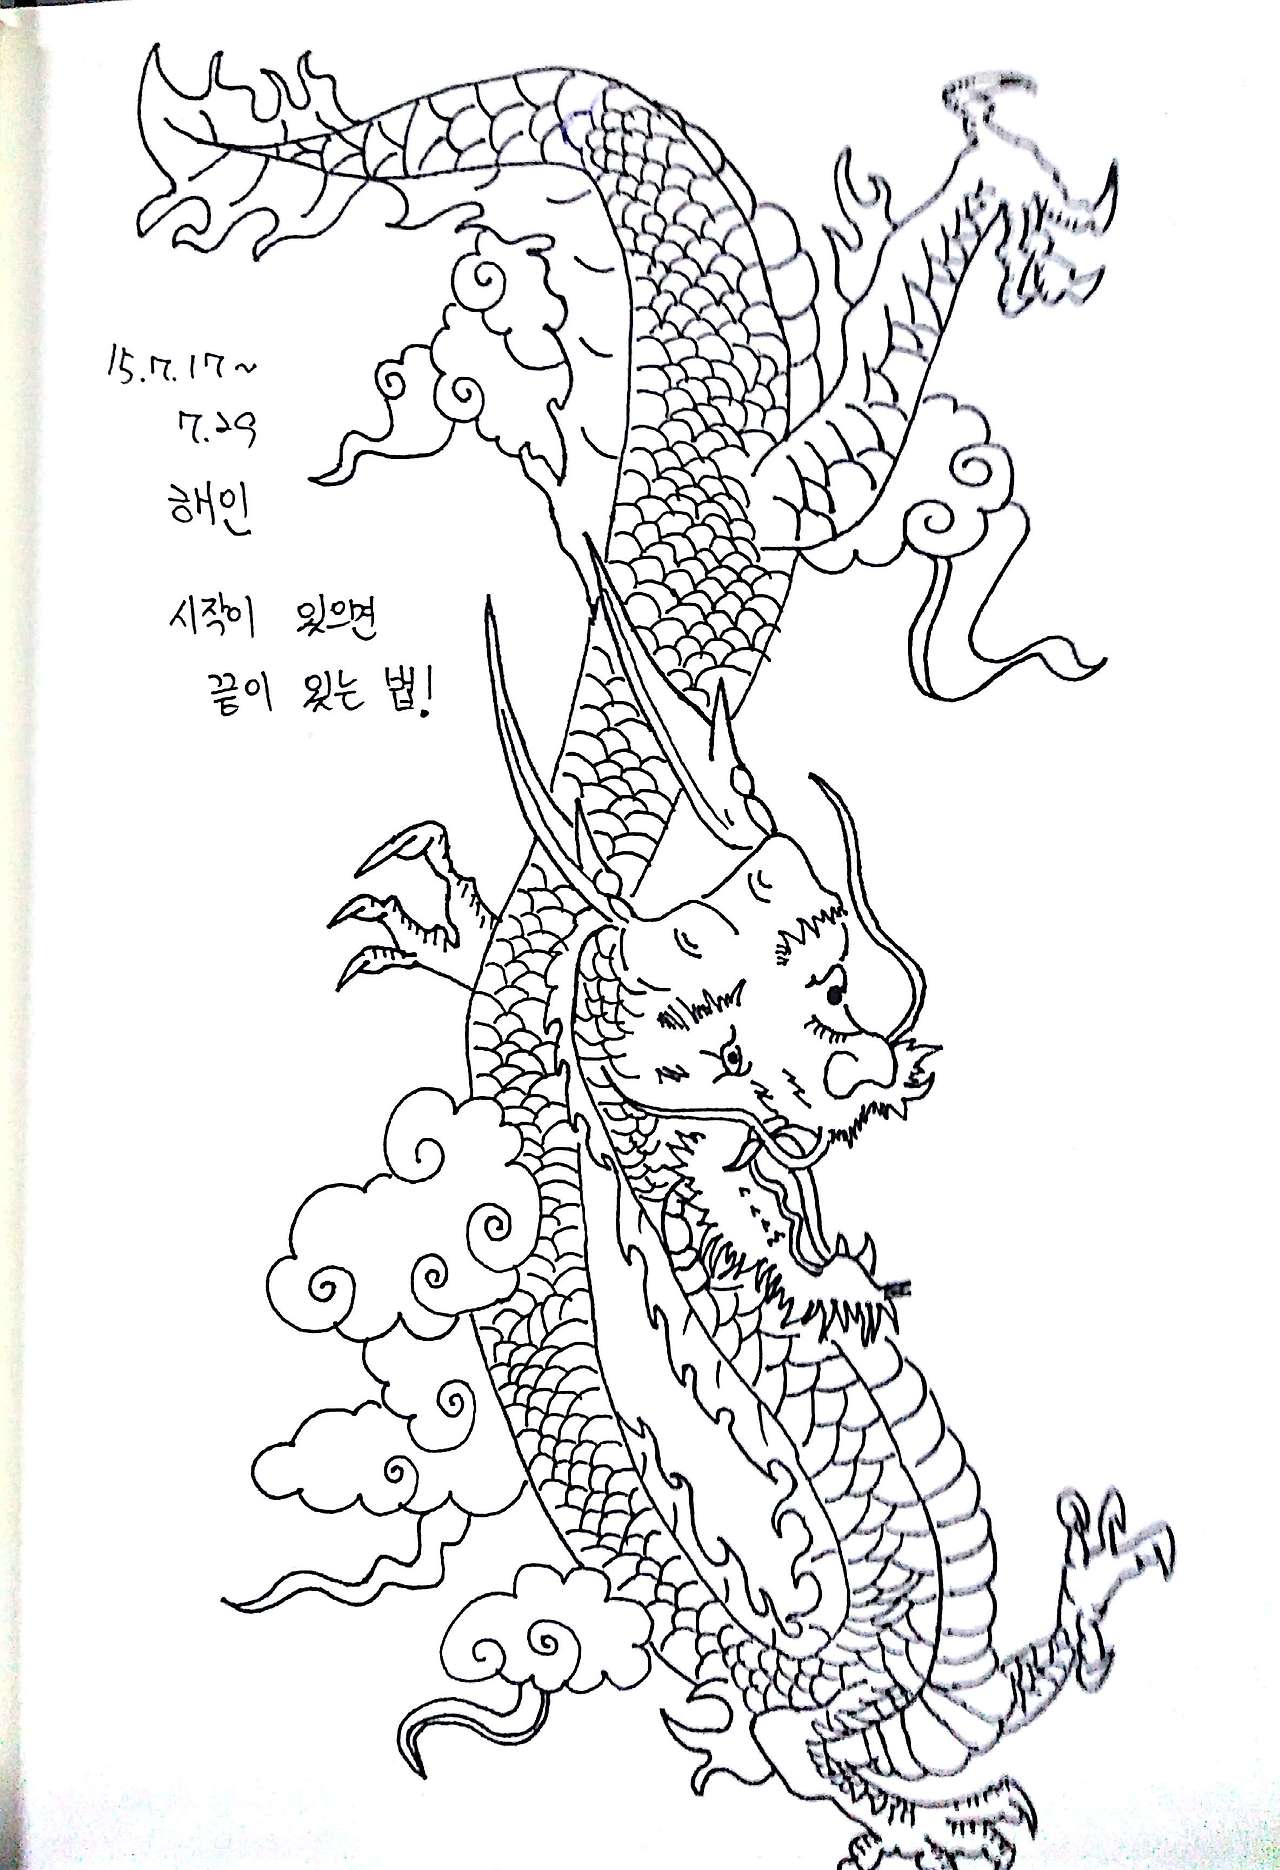 15.7.17~
7.29
해인
시작이 있으면
끝이 있는 법!